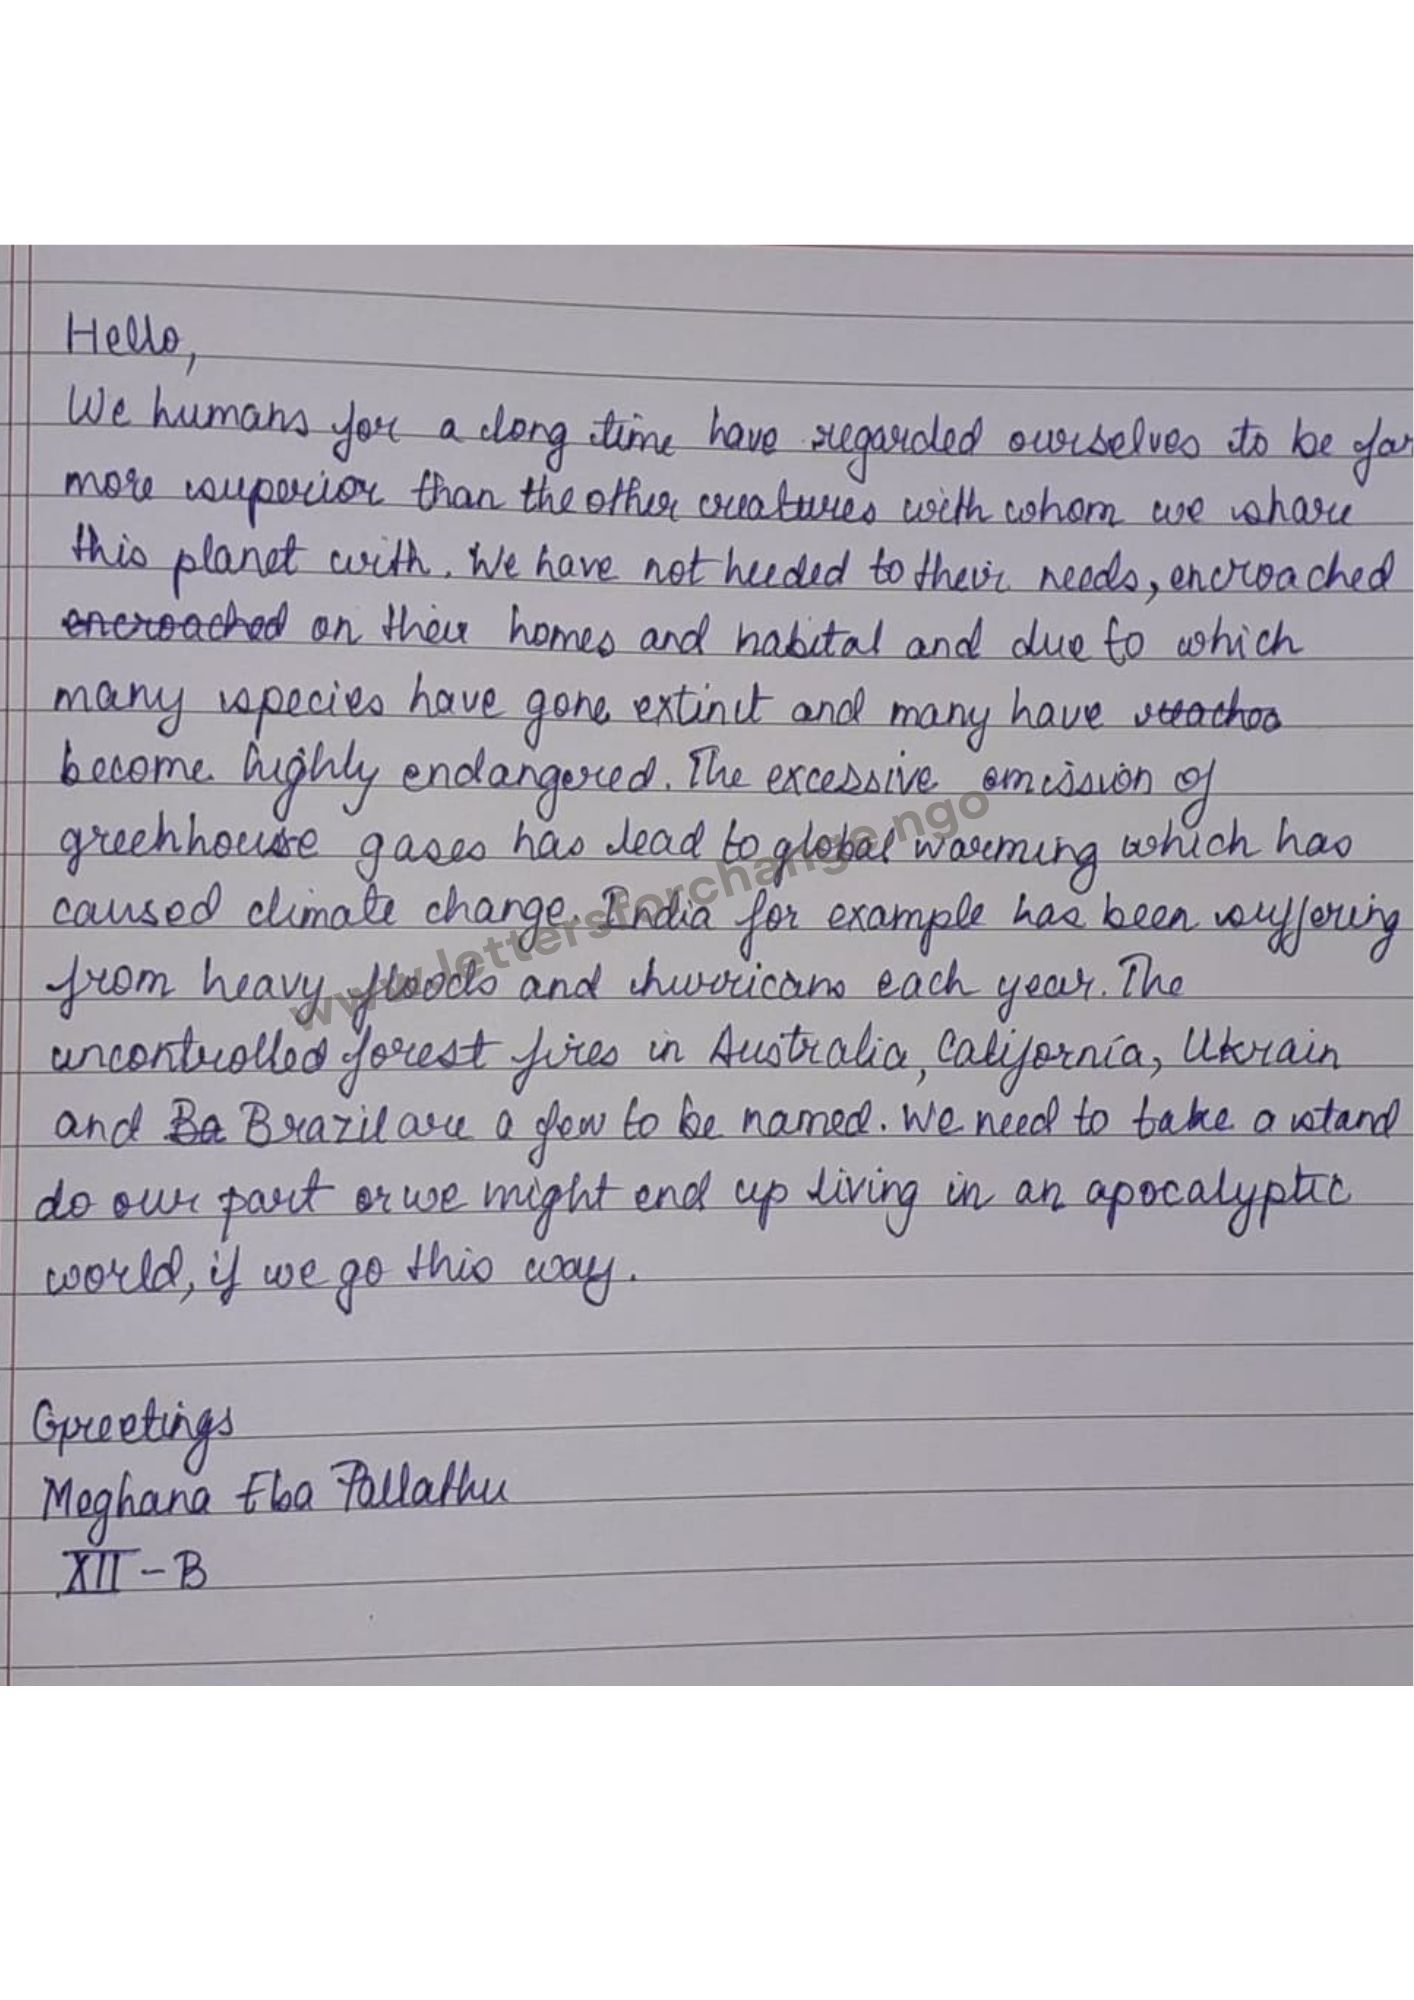 Hello,
We humans for a long time have regarded ourselves to be far
more superior than the other creatures with whom we share
this planet with. We have not heeded to their needs, encroached
encroached on their homes and habital and due to which
many species have gone extinct and many have
become highly endangered. The excessive emission of
greehhouse gases has lead to global warming which has
caused climate change. India for example has been suffering
from heavy floods and hurricans each year. The
uncontrolled forest fires in Australia, California, Ukrain
and Ba Brazil are a few to be named. We need to take a stand
do our part or we might end up living in an apocalyptic
world, if we go this way.
Greetings
Meghana Elsa Pallathu
XII - B
www.lettersforchange.ngo